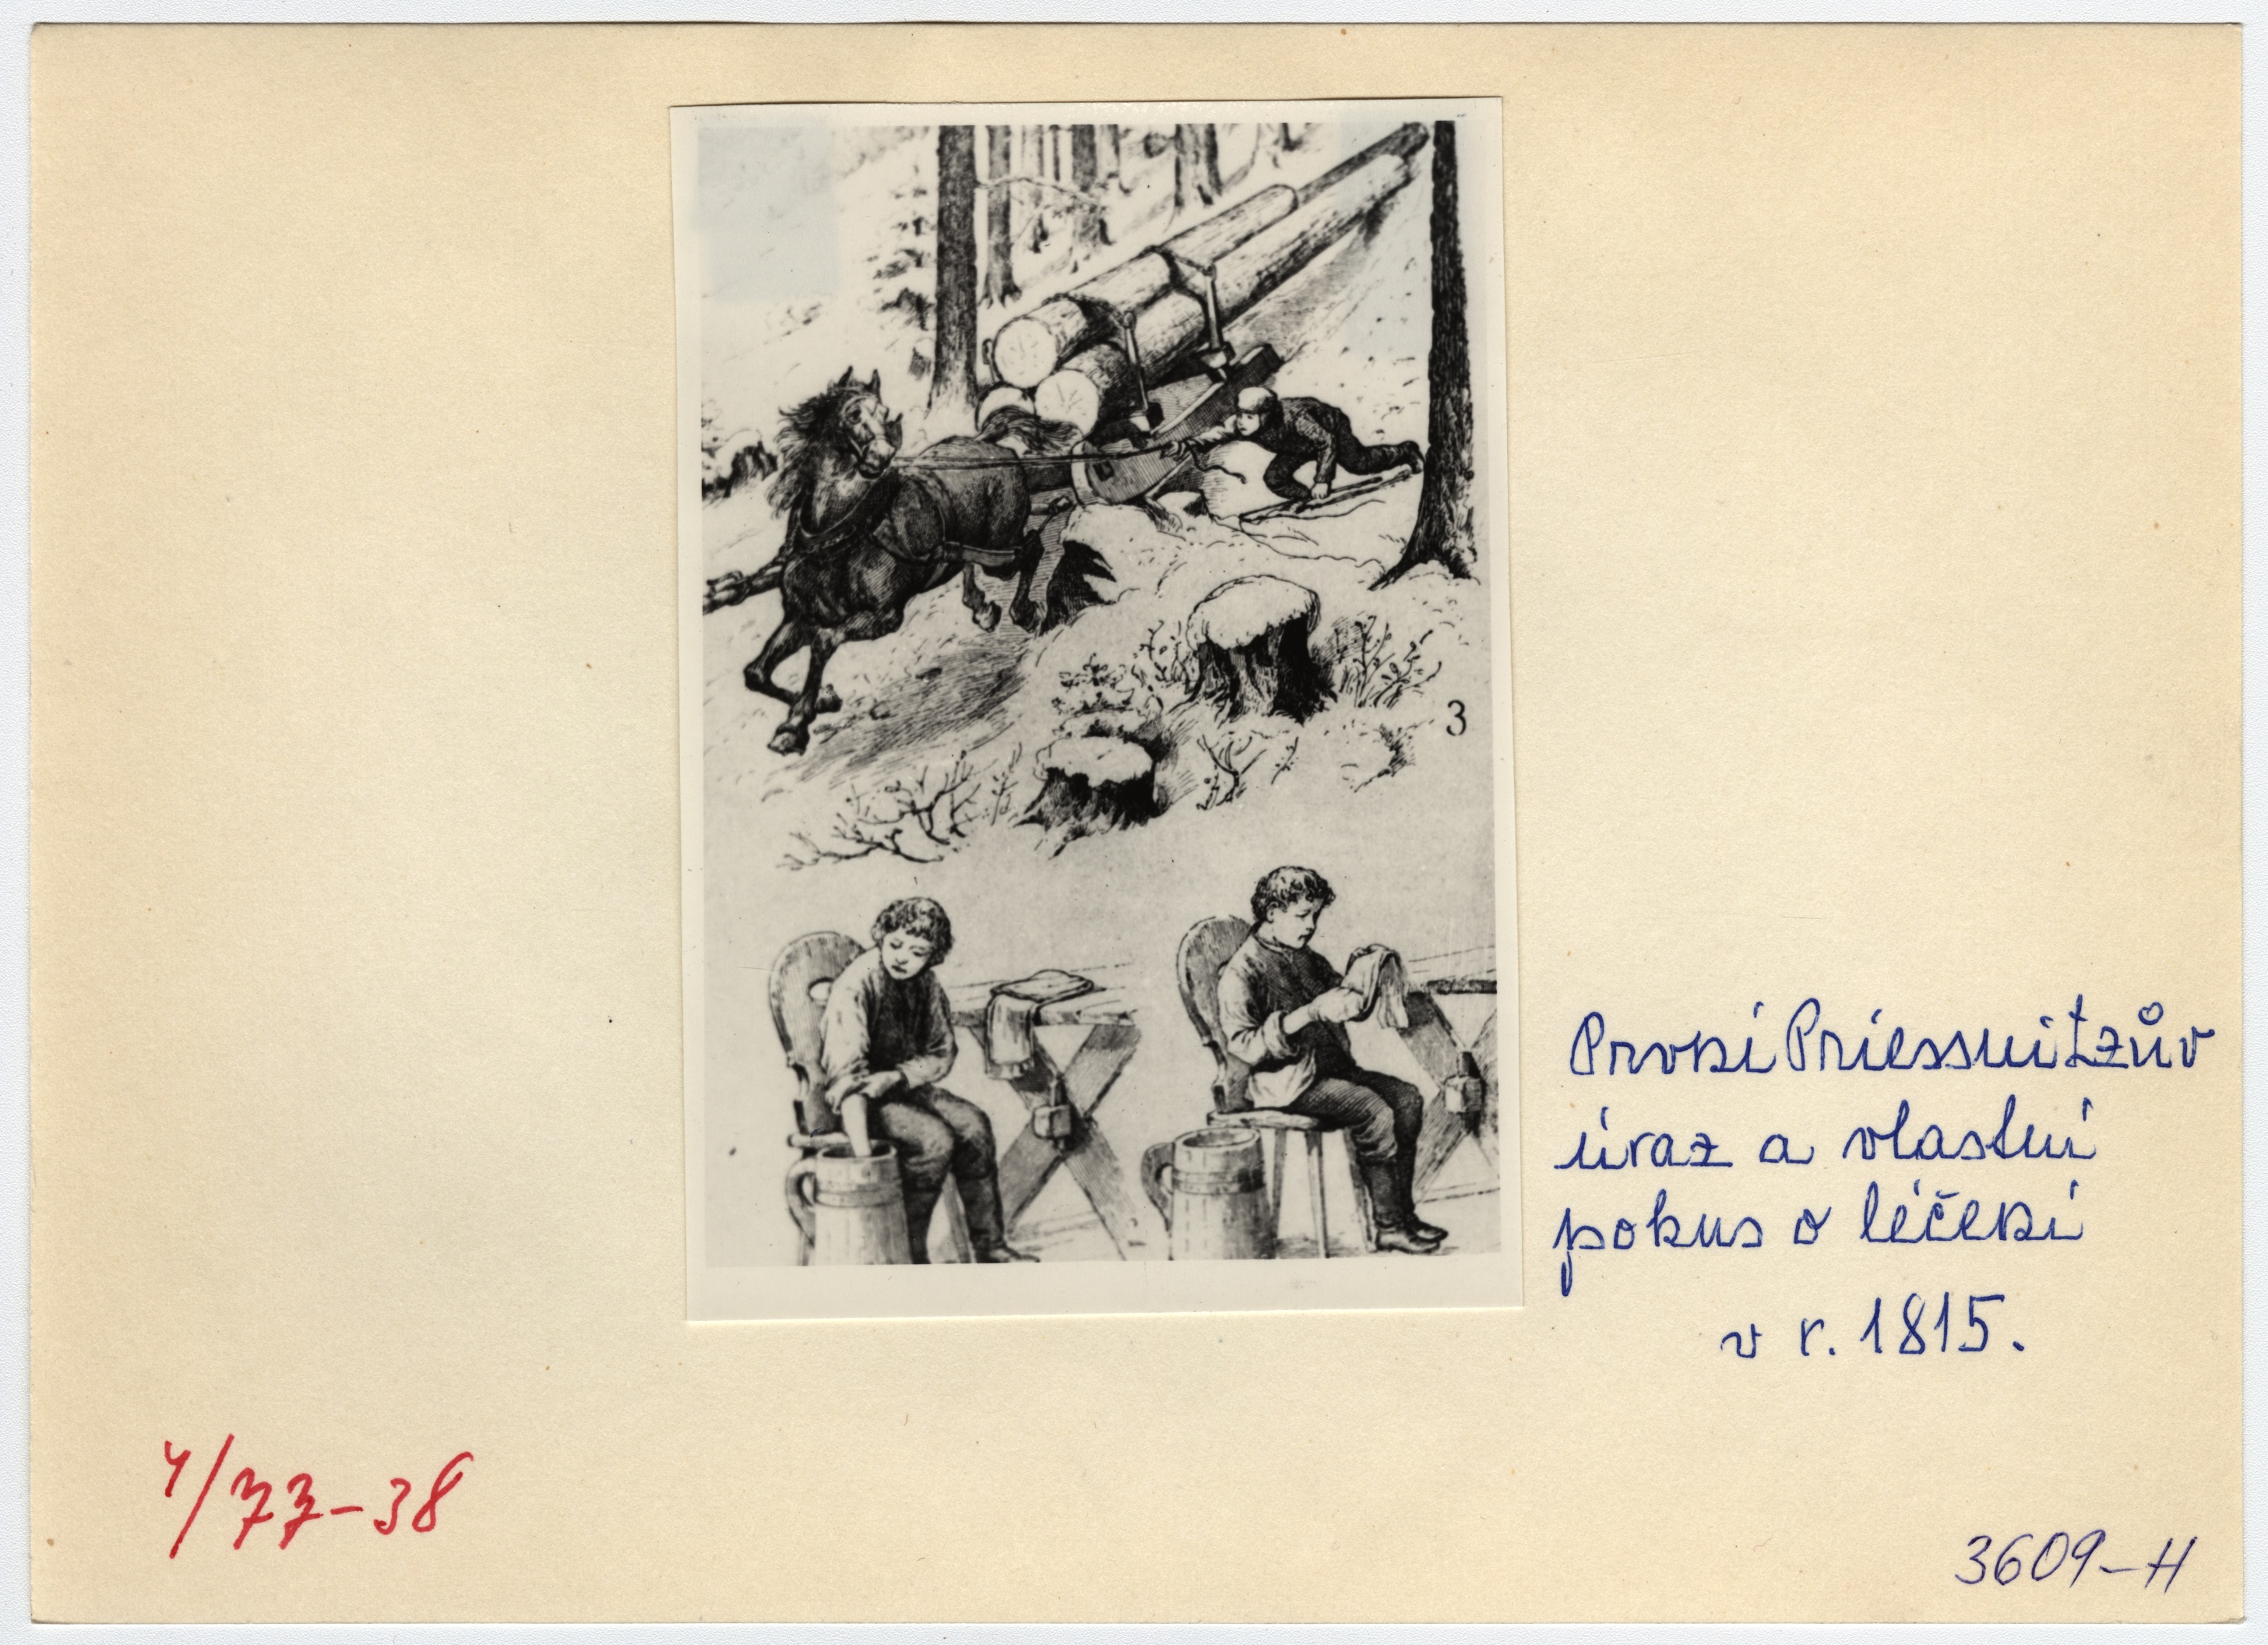 3
První Priessnitzův
úraz a vlastní
pokus o léčení
v r. 1815.
4/77-38
3609-H